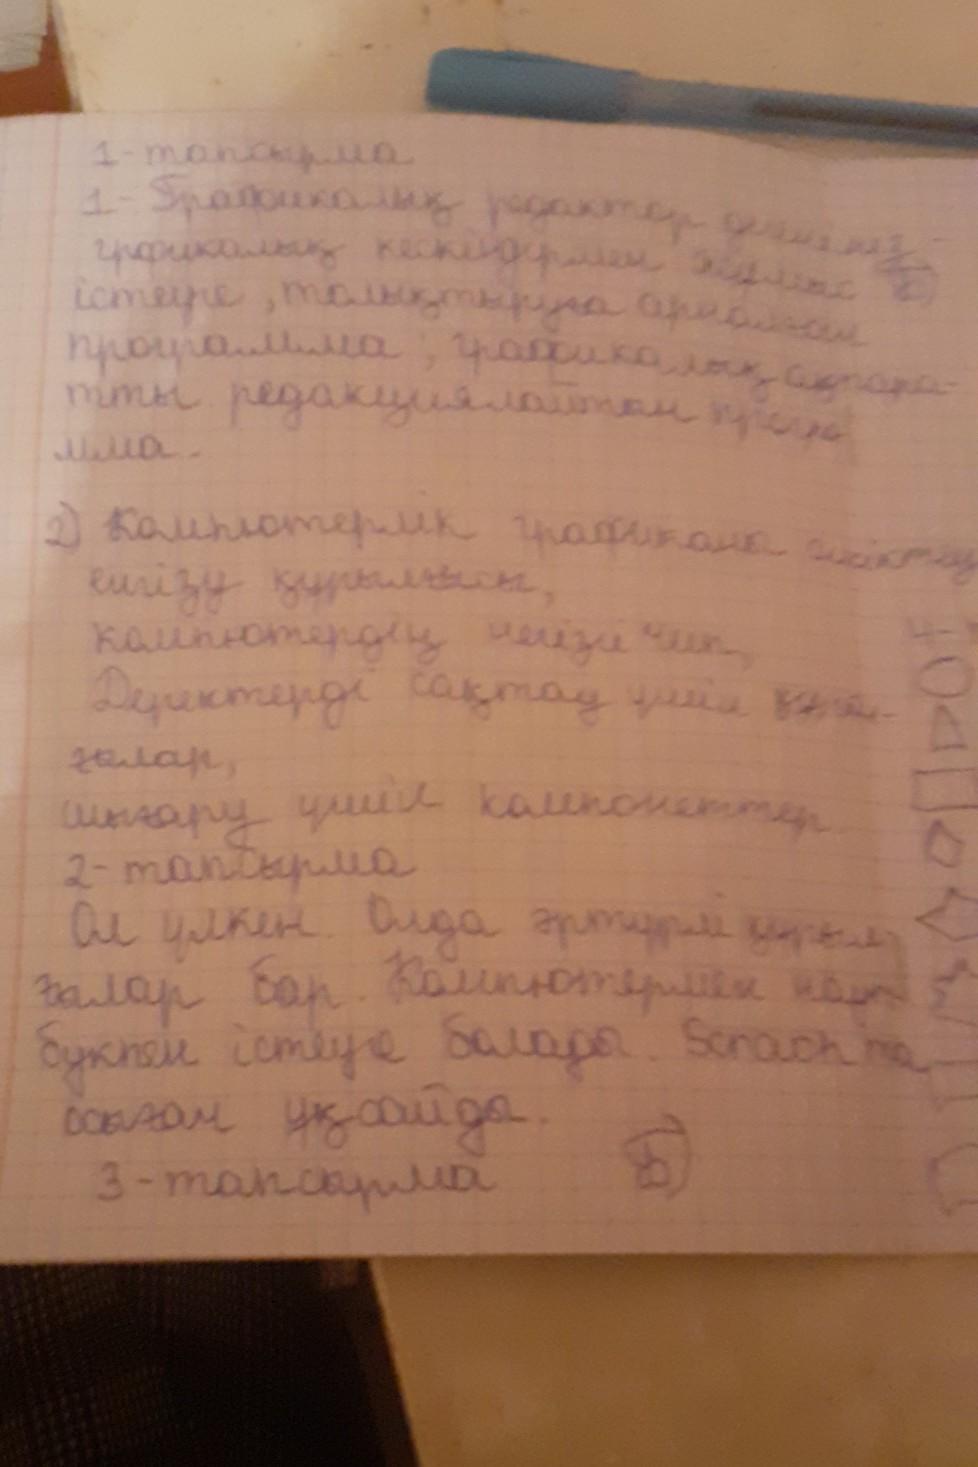 1-тапсырма
1- Графикалық редактор дегеніміз -
грфикалық кескіндермен жұмыс Б)
істеуге, толықтыруға арналған
программа, графикалық ақпара-
тты редакциялайтын програ
мма.
2) Компютерлік графикама
енгізу құрылғысы,
компютердің негізі чип,
Деректерді сақтау үшін
ғылар,
шығару үшін компонеттер
2-тапсырма
Ол үлкен. Онда әртүрлі құрыл
ғылар бар. Компютермен ноут
букпен істеуге болады. Scnach та
осыған ұқсайды.
3-тапсырма Б)
4-